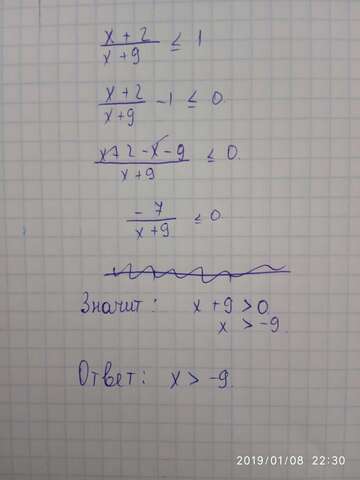 x + 2 / x + 9 ≤ 1
x + 2 / x + 9 - 1 ≤ 0.
x + 2 - x - 9 / x + 9 ≤ 0.
- 7 / x + 9 ≤ 0
Значит: x + 9 > 0
x > -9.
Ответ: x > -9.
2019/01/08 22:30